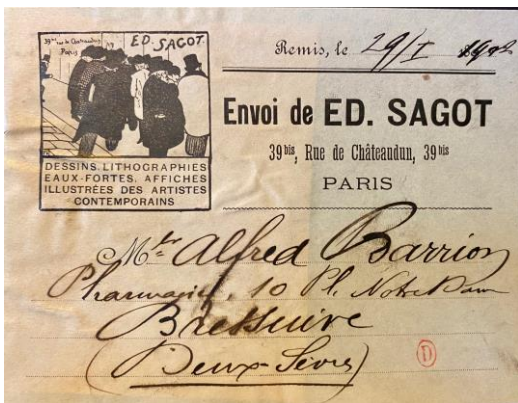 39bis rue de Chateaudun
Paris
ED. SAGOT
DESSINS. LITHOGRAPHIES
EAUX-FORTES. AFFICHES
ILLUSTRÉES DES ARTISTES
CONTEMPORAINS
Remis, le 29/I
Envoi de ED. SAGOT
39bis, Rue de Châteaudun, 39bis
PARIS
Alfred Barrion
Pharmacien, 10 Pl. Notre Dame
Bressuire
(Deux-Sèvres)
D